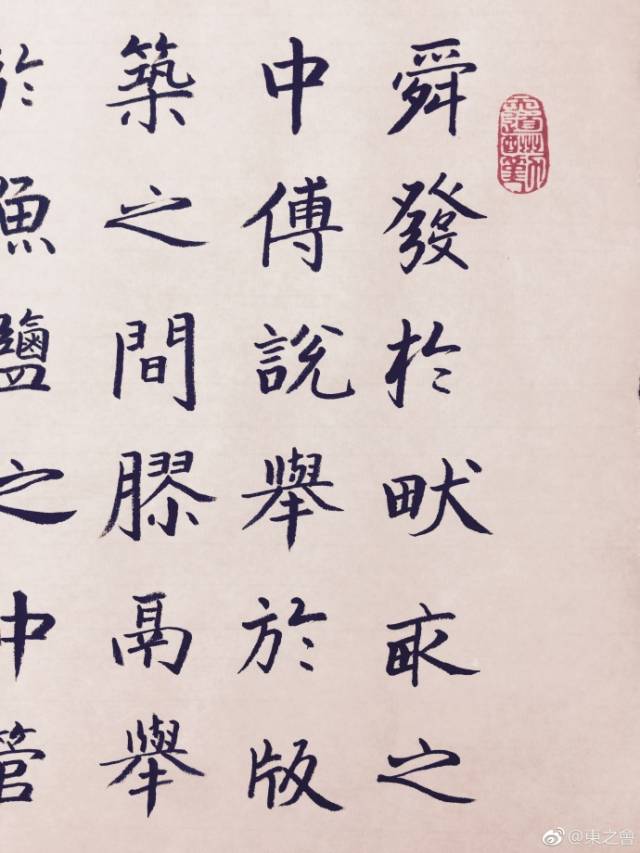 舜發於畎畆之
中傅說舉於版
築之間膠鬲舉
於魚鹽之中管
@東之曾